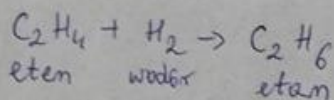 C₂H₄ + H₂ → C₂H₆
eten wodór etan